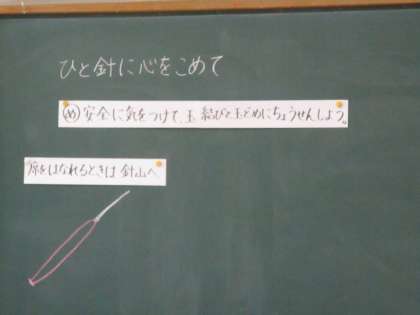 ひと針に心をこめて
め 安全に気をつけて、玉結びと玉どめにちょうせんしよう。
席をはなれるときは 針山へ